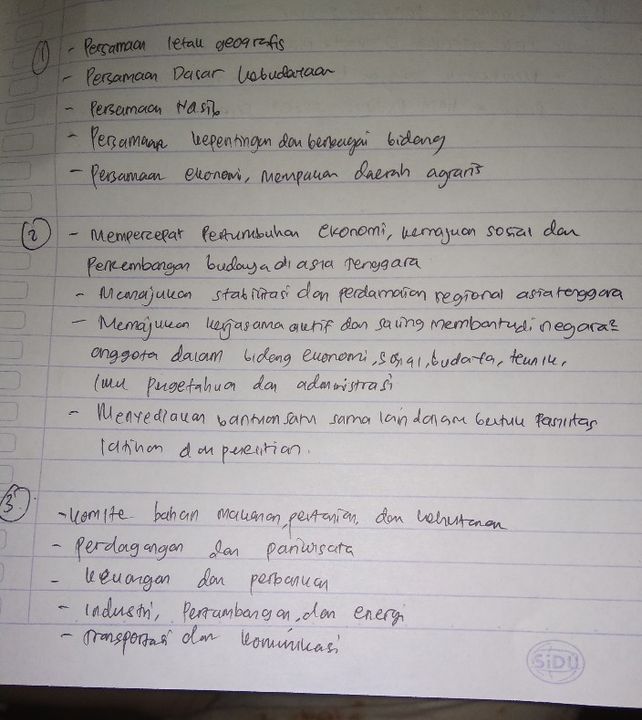 1 - Persamaan letak geografis
- Persamaan Dasar kebudayaan
- Persamaan Nasib
- Persamaan kepentingan dan berbagai bidang
- Persamaan ekonomi, merupakan daerah agraris
2 - Mempercepat Pertumbuhan ekonomi, kemajuan sosial dan
Perkembangan budaya di asia tenggara
- Memajukan stabilitasi dan perdamaian regional asia tenggara
- Memajukan kerjasama aktif dan saling membantu di negara2
anggota dalam bidang ekonomi, sosial, budaya, teknik,
ilmu pengetahuan dan administrasi
- Menyediakan bantuan satu sama lain dalam bentuk fasilitas
latihan dan penelitian.
3. - komite bahan makanan, pertanian, dan kehutanan
- Perdagangan dan pariwisata
- keuangan dan perbankan
- Industri, Pertambangan, dan energi
- transportasi dan komunikasi
SiDU